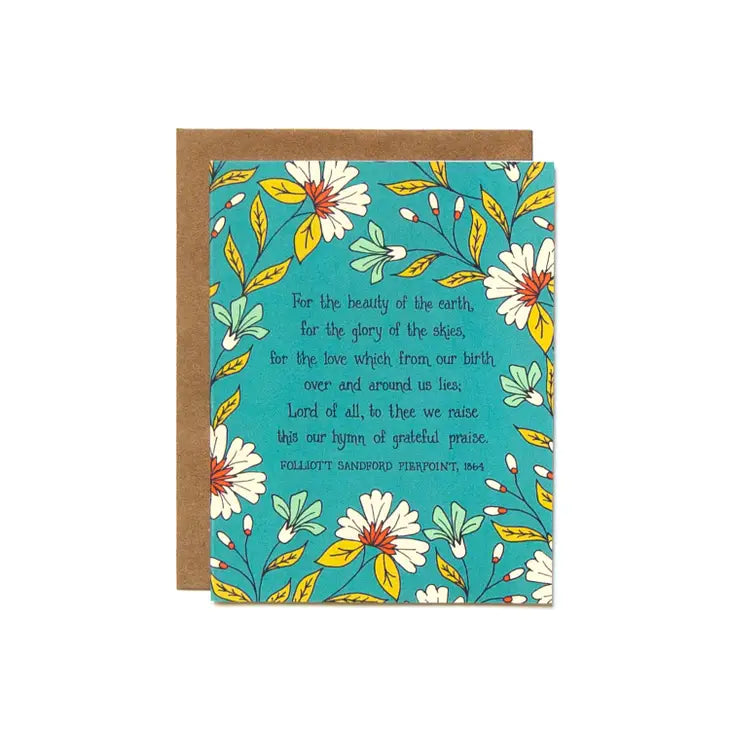 For the beauty of the earth,
for the glory of the skies,
for the love which from our birth
over and around us lies;
Lord of all, to thee we raise
this our hymn of grateful praise.
FOLLIOTT SANDFORD PIERPOINT, 1864